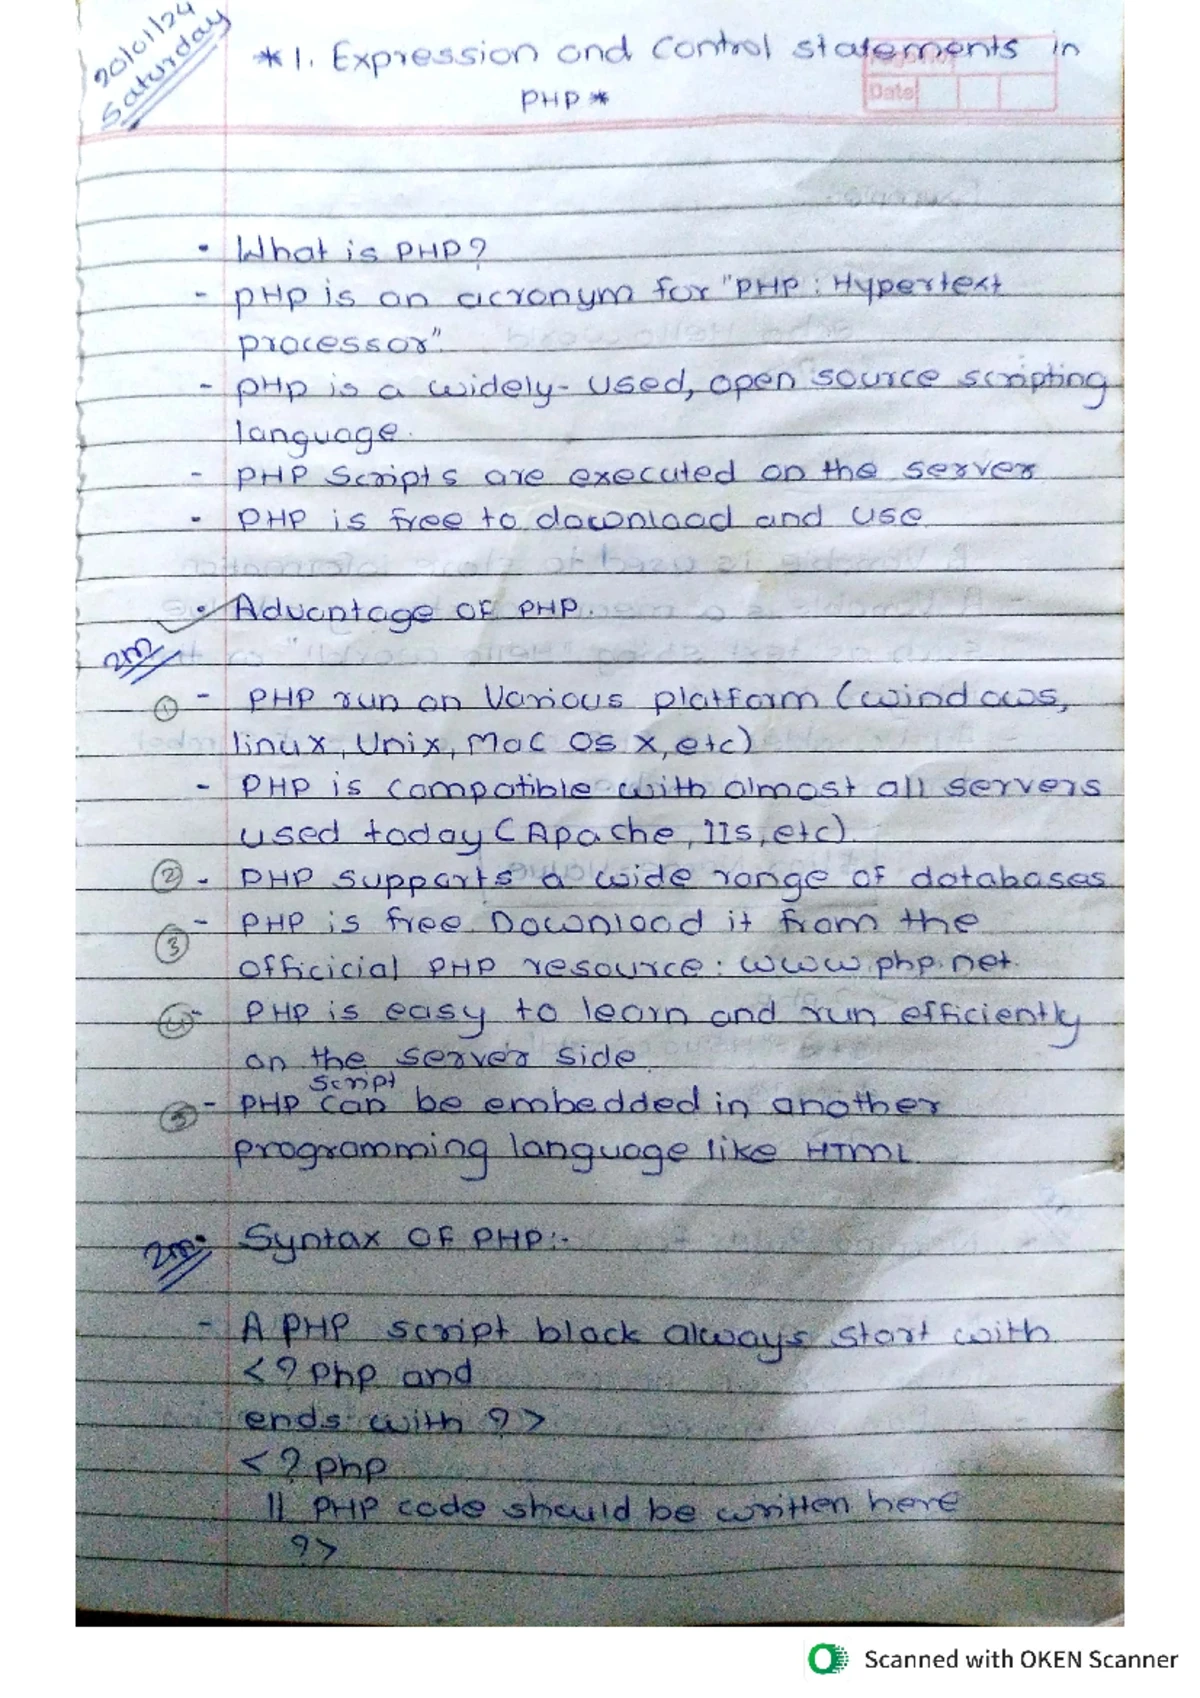 20/01/24
Saturday
*1. Expression and Control statements in
PHP*
Date
• What is PHP?
- PHP is an acronym for "PHP : Hypertext
processor".
- PHP is a widely-used, open source scripting
language.
- PHP Scripts are executed on the server
- PHP is free to download and use
• Advantage OF PHP.
2m
① - PHP run on Various platform (windows,
linux, Unix, Mac OS X, etc)
- PHP is compatible with almost all servers
used today (Apache, IIS, etc).
② - PHP supports a wide range of databases
③ - PHP is free. Download it from the
officicial PHP resource: www.php.net.
④ - PHP is easy to learn and run efficiently
on the server side.
script
⑤ - PHP can be embedded in another
programming language like HTML.
2m • Syntax OF PHP:-
- A PHP script block always start with
<?php and
ends with ?>
<?php
// PHP code should be written here
?>
Scanned with OKEN Scanner